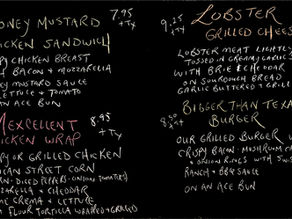 ONEY MUSTARD 7.95
ICKEN SANDWICH + TX
PY CHICKEN BREAST
BACON & MOZZARELLA
EY MUSTARD SAUCE
LETTUCE + TOMATO
AN ACE BUN
EXCELLENT 8.95
ICKEN WRAP + TX
PY OR GRILLED CHICKEN
ICAN STREET CORN
ZARELLA & CHEDDAR
ME CREMA + LETTUCE
A FLOUR TORTILLA WRAPPED + GRILLED
9.25 LOBSTER
+ TX GRILLED CHEES
LOBSTER MEAT LIGHTLY
TOSSED IN CREAMY GARLIC
WITH BRIE & CHEDDAR
ON SOURDOUGH BREAD
GARLIC BUTTERED + GRILL
BIGGER THAN TEXA
8.50 BURGER
+ TX
OUR GRILLED BURGER W
CRISPY BACON - MUSHROOM
+ ONION RINGS WITH SW
RANCH + BBQ SAUCE
ON AN ACE BUN